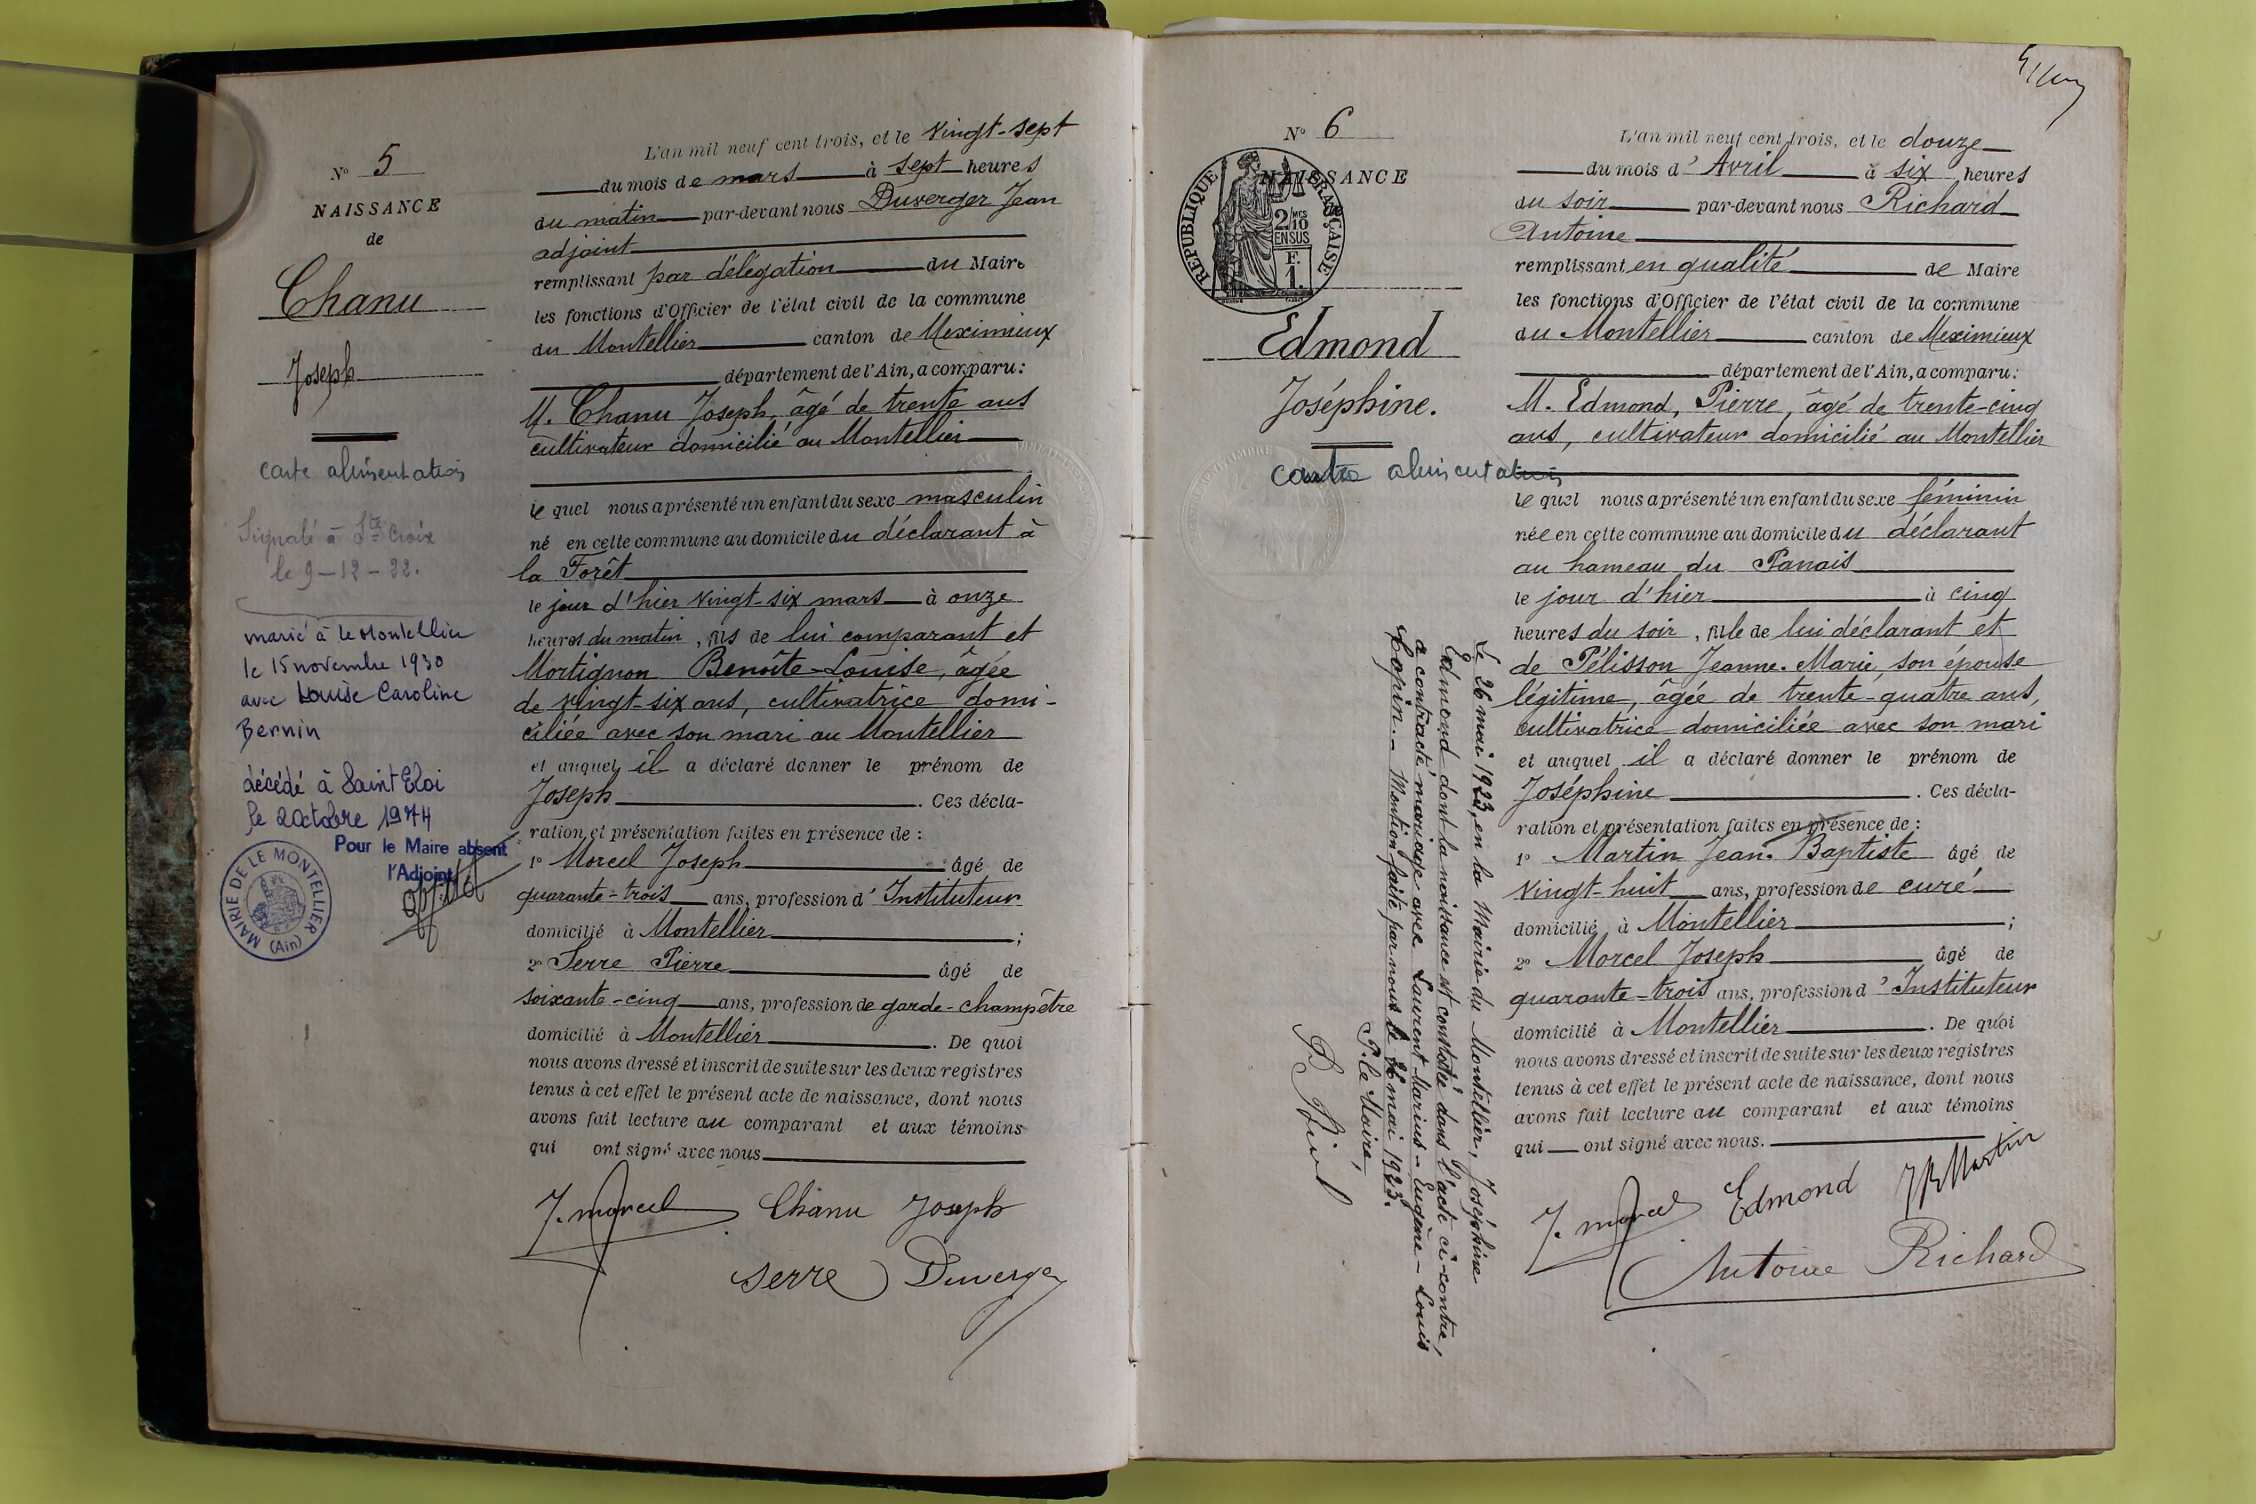 N° 5
NAISSANCE
de
Chanu
Joseph
carte alimentation
Signalé à Ste Croix
le 9-12-22.
marié à le Montellier
le 15 novembre 1930
avec Louise Caroline
Bernin
décédé à Saint Eloi
le 2 Octobre 1974
Pour le Maire absent
l'Adjoint
MAIRIE DE LE MONTELLIER
(Ain)
L'an mil neuf cent trois, et le vingt-sept
du mois de mars à sept heures
du matin par-devant nous Duverger Jean
adjoint
remplissant par délégation du Maire
les fonctions d'Officier de l'état civil de la commune
du Montellier canton de Meximieux
département de l'Ain, a comparu:
M. Chanu Joseph, âgé de trente ans
cultivateur domicilié au Montellier
le quel nous a présenté un enfant du sexe masculin
né en cette commune au domicile du déclarant à
la Forêt
le jour d'hier vingt-six mars à onze
heures du matin, fils de lui comparant et
Mortignon Benoîte-Louise, âgée
de vingt-six ans, cultivatrice domi-
ciliée avec son mari au Montellier
et auquel il a déclaré donner le prénom de
Joseph. Ces décla-
ration et présentation faites en présence de :
1° Morcel Joseph âgé de
quarante-trois ans, profession d'Instituteur
domicilié à Montellier ;
2° Serre Pierre âgé de
soixante-cinq ans, profession de garde-champêtre
domicilié à Montellier. De quoi
nous avons dressé et inscrit de suite sur les deux registres
tenus à cet effet le présent acte de naissance, dont nous
avons fait lecture au comparant et aux témoins
qui ont signé avec nous
J. morcel Chanu Joseph
Serre Duverger
N° 6
NAISSANCE
de
REPUBLIQUE FRANÇAISE
2/10 MES
EN SUS
F.
1.
Edmond
Joséphine.
carte alimentation
Le 26 mai 1923, en la Mairie du Montellier, Joséphine
Edmond dont la naissance est constatée dans l'acte ci-contre,
a contracté mariage avec Laurent-Marius-Eugène-Louis
Copin.- Mention faite par nous le 26 mai 1923.
P. le Maire,
L'an mil neuf cent trois, et le douze
du mois d'Avril à six heures
du soir par-devant nous Richard
Antoine
remplissant en qualité de Maire
les fonctions d'Officier de l'état civil de la commune
du Montellier canton de Meximieux
département de l'Ain, a comparu:
M. Edmond, Pierre, âgé de trente-cinq
ans, cultivateur domicilié au Montellier
le quel nous a présenté un enfant du sexe féminin
née en cette commune au domicile du déclarant
au hameau du Panais
le jour d'hier à cinq
heures du soir, fille de lui déclarant et
de Pélisson Jeanne-Marie, son épouse
légitime, âgée de trente-quatre ans,
cultivatrice domiciliée avec son mari
et auquel il a déclaré donner le prénom de
Joséphine. Ces décla-
ration et présentation faites en présence de :
1° Martin Jean-Baptiste âgé de
vingt-huit ans, profession de curé
domicilié à Montellier ;
2° Morcel Joseph âgé de
quarante-trois ans, profession d'Instituteur
domicilié à Montellier. De quoi
nous avons dressé et inscrit de suite sur les deux registres
tenus à cet effet le présent acte de naissance, dont nous
avons fait lecture au comparant et aux témoins
qui ont signé avec nous.
J. morcel Edmond JB Martin
Antoine Richard